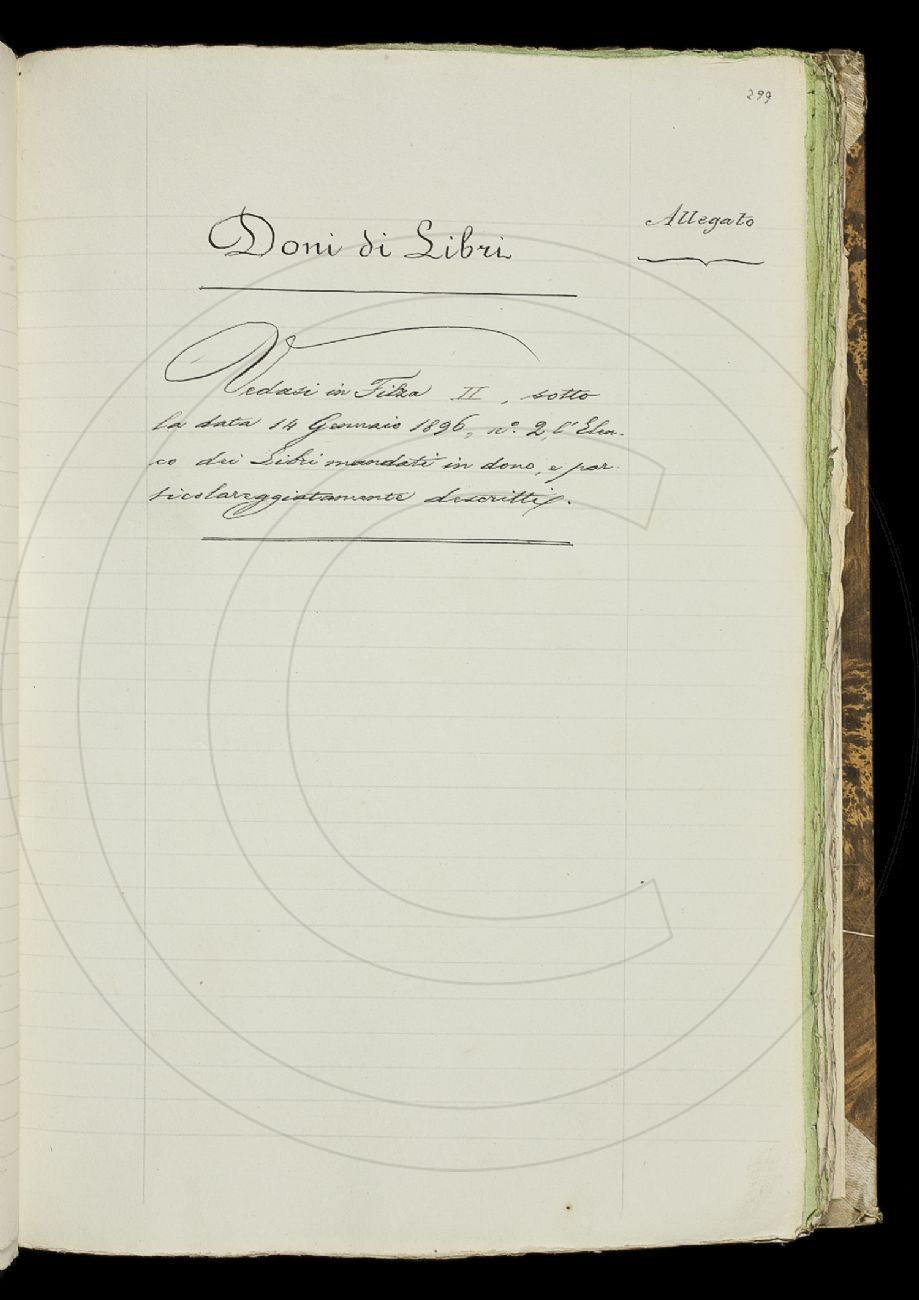 299
Allegato
Doni di Libri
Vedasi in Filza II, sotto
la data 14 Gennaio 1896, nº. 2, l'Elen-
co dei Libri mandati in dono, e par-
ticolareggiatamente descritti.